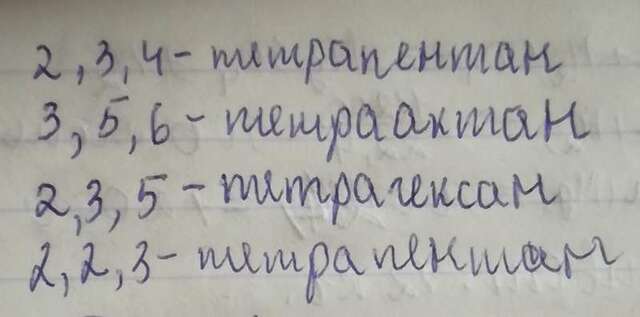 2,3,4-тетрапентан
3,5,6-тетраактан
2,3,5-тетрагексан
2,2,3-тетрапентан